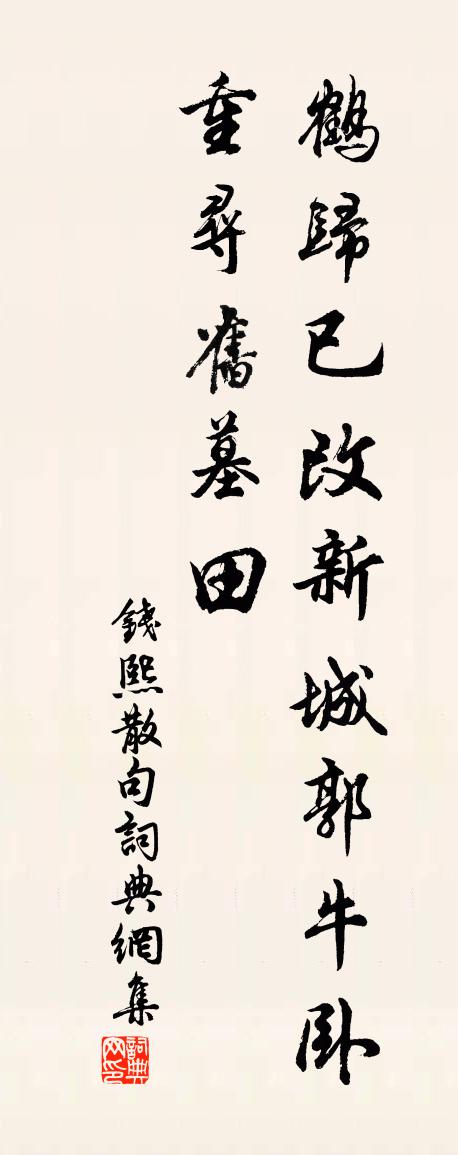 鶴歸已改新城郭牛卧
重尋舊墓田
錢熙散句詞典網集
詞典网印